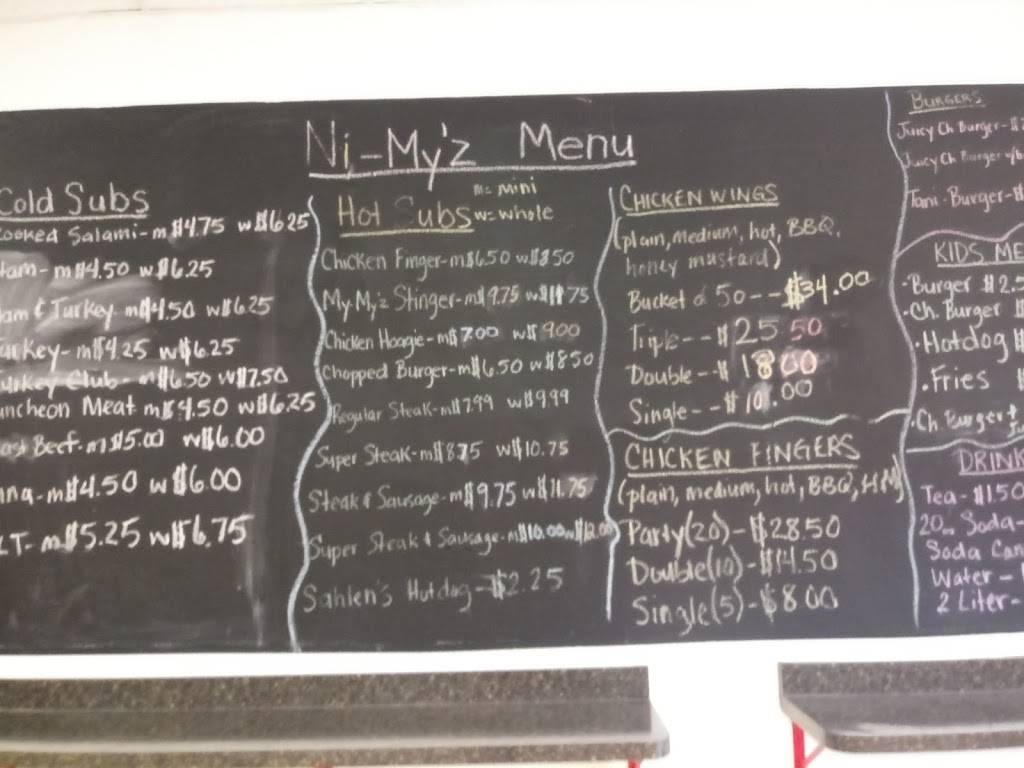 Ni-My'z Menu
Cold Subs
Cooked Salami-m$4.75 w$6.25
Ham-m$4.50 w$6.25
Ham & Turkey-m$4.50 w$6.25
Turkey-m$4.25 w$6.25
Turkey Club-m$6.50 w$7.50
Luncheon Meat m$4.50 w$6.25
Roast Beef-m$5.00 w$6.00
m$4.50 w$6.00
LT-m$5.25 w$6.75
m= mini
Hot Subs w= whole
Chicken Finger-m$6.50 w$8.50
My-My'z Stinger-m$9.75 w$11.75
Chicken Hoagie-m$7.00 w$9.00
Chopped Burger-m$6.50 w$8.50
Regular Steak-m$7.99 w$9.99
Super Steak-m$8.75 w$10.75
Steak & Sausage-m$9.75 w$11.75
Super Steak & Sausage-m$10.00 w$12.00
Sahlen's Hotdog-$2.25
CHICKEN WINGS
(plain, medium, hot, BBQ,
honey mustard)
Bucket of 50--$34.00
Triple--$25.50
Double--$18.00
Single--$10.00
CHICKEN FINGERS
(plain, medium, hot, BBQ, HM)
Party(20)-$28.50
Double(10)-$14.50
Single(5)-$8.00
BURGERS
Juicy Ch Burger-$
Juicy Ch Burger w/b
Tani-Burger-$
KIDS ME
•Burger $2.5
•Ch. Burger $
•Hotdog $
•Fries $
•Ch. Burger +
DRINK
Tea-$1.50
20oz Soda-
Soda Can
Water-
2 Liter-